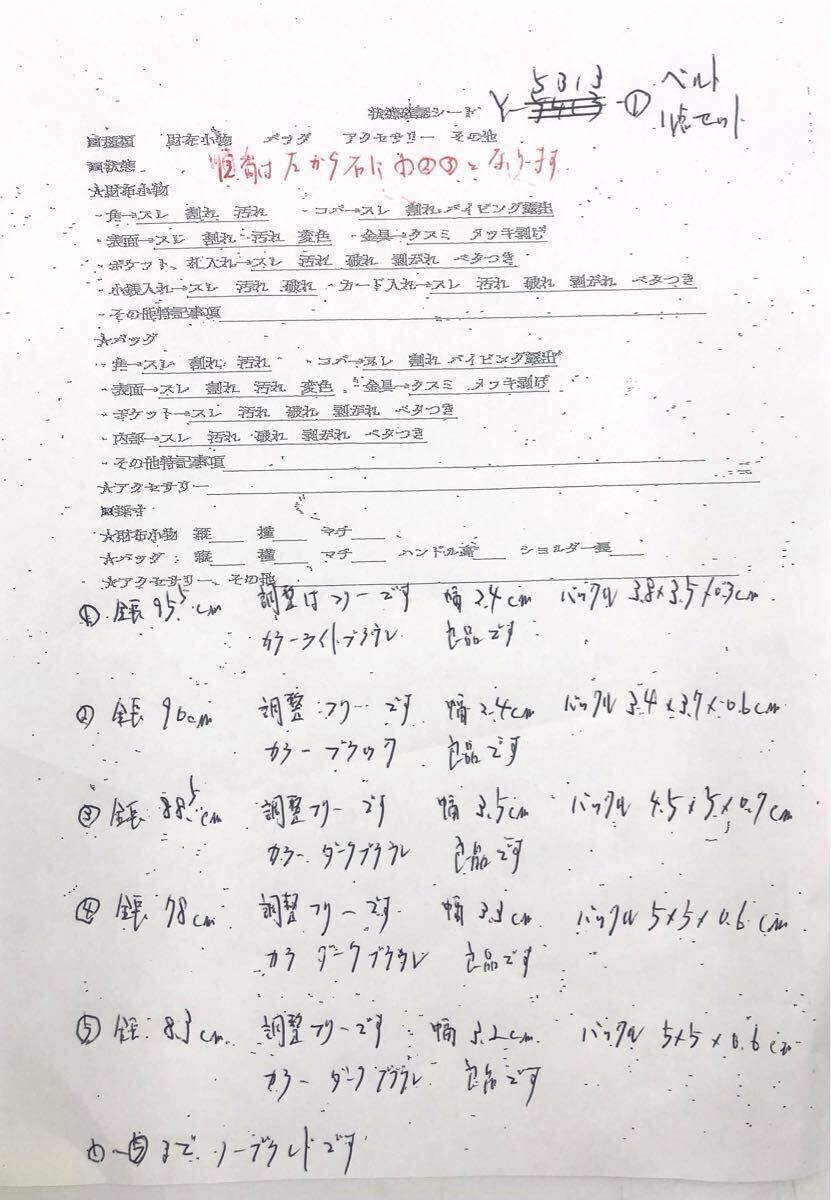 状態確認シート Y-5313-① ベルト
1点セット
■種類 財布小物 バッグ アクセサリー その他
■状態 順番は左から右に①②③となります
★財布小物
・角→スレ 割れ 汚れ ・コバ→スレ 割れ パイピング露出
・表面→スレ 割れ 汚れ 変色 ・金具→クスミ メッキ剥げ
・ポケット、札入れ→スレ 汚れ 破れ 剥がれ ベタつき
・小銭入れ→スレ 汚れ 破れ ・カード入れ→スレ 汚れ 破れ 剥がれ ベタつき
・その他特記事項
★バッグ
・角→スレ 割れ 汚れ ・コバ→スレ 割れ パイピング露出
・表面→スレ 割れ 汚れ 変色 ・金具→クスミ メッキ剥げ
・ポケット→スレ 汚れ 破れ 剥がれ ベタつき
・内部→スレ 汚れ 破れ 剥がれ ベタつき
・その他特記事項
★アクセサリー
■採寸
★財布小物 縦 横 マチ
★バッグ 縦 横 マチ ハンドル高 ショルダー長
★アクセサリー、その他
① 全長 95.5cm 調整はフリーです 幅 2.4cm バックル 3.8×3.5×0.3cm
カラーライトブラウン 良品です
② 全長 90cm 調整フリーです 幅 2.4cm バックル 3.4×3.7×0.6cm
カラーブラック 良品です
③ 全長 88.5cm 調整フリーです 幅 3.5cm バックル 4.5×5×0.7cm
カラーダークブラウン 良品です
④ 全長 78cm 調整フリーです 幅 3.3cm バックル 5×5×0.6cm
カラーダークブラウン 良品です
⑤ 全長 83cm 調整フリーです 幅 3.2cm バックル 5×5×0.6cm
カラーダークブラウン 良品です
①〜⑤までノーブランドです